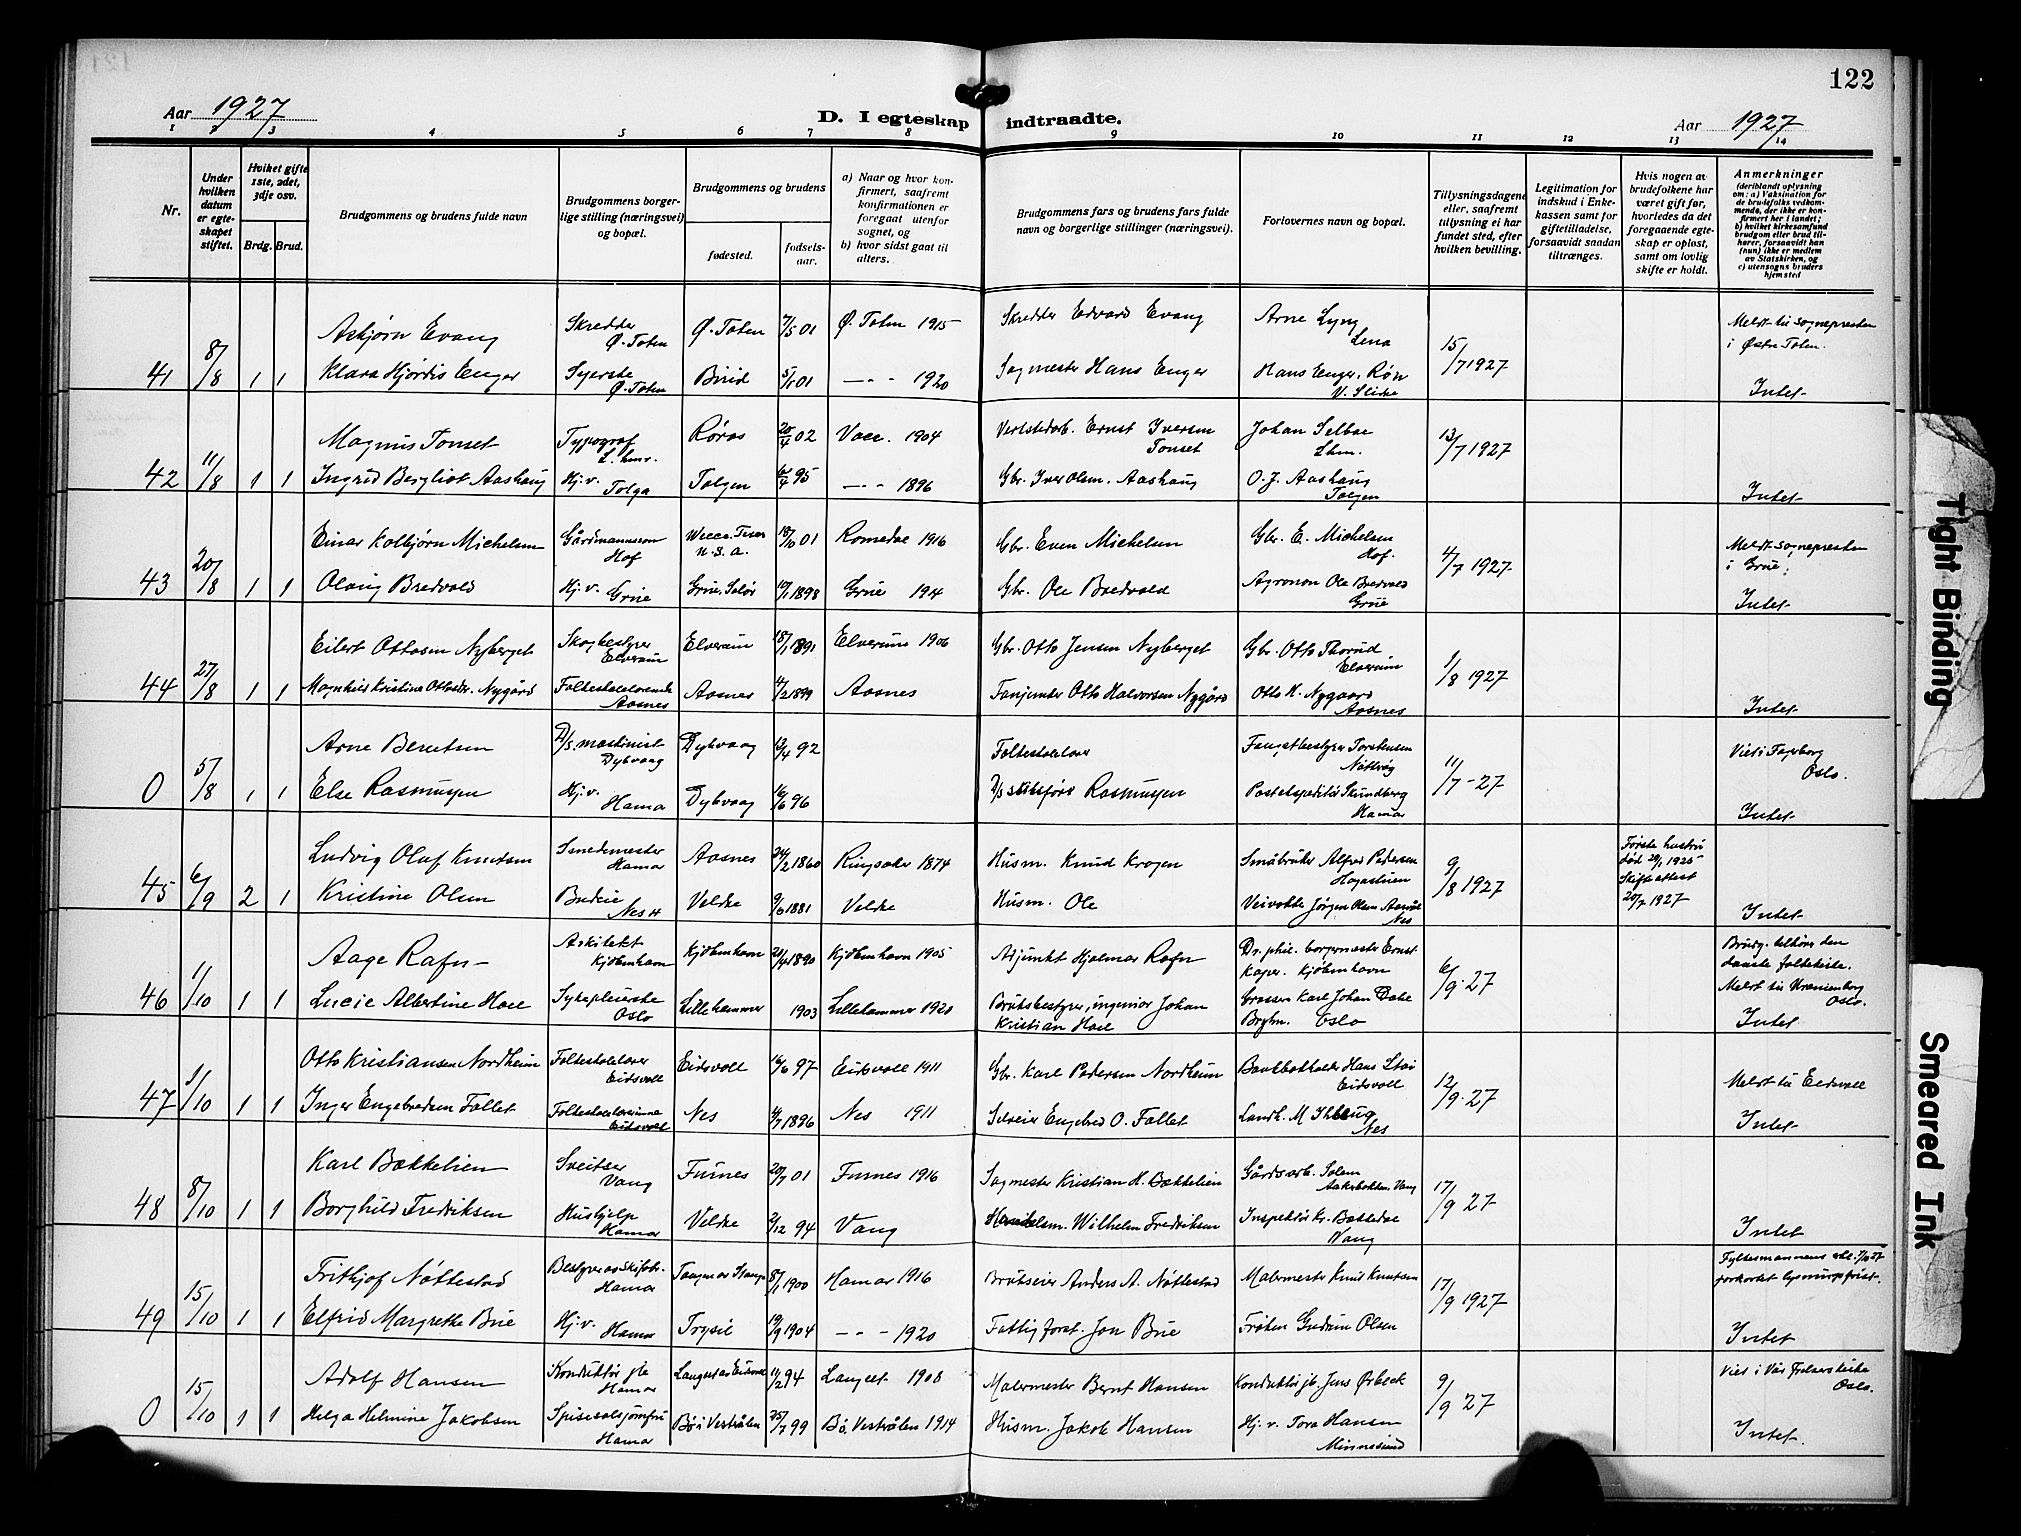 122
Aar 1927
D. I egteskap indtraadte.
Aar 1927
1 2 3 4 5 6 7 8 9 10 11 12 13 14
Nr.
Under hvilken datum er egteskapet stiftet.
Hvilket gifte 1ste, 2det, 3dje osv.
Brdg. Brud.
Brudgommens og brudens fulde navn
Brudgommens borgerlige stilling (næringsvei) og bopæl.
Brudgommens og brudens
fødested. fødselsaar.
a) Naar og hvor konfirmert, saafremt konfirmationen er foregaat utenfor sognet, og
b) hvor sidst gaat til alters.
Brudgommens fars og brudens fars fulde navn og borgerlige stillinger (næringsvei).
Forlovernes navn og bopæl.
Tillysningsdagene eller, saafremt tillysning ei har fundet sted, efter hvilken bevilling.
Legitimation for indskud i Enkekassen samt for giftetilladelse, forsaavidt saadan tiltrænges.
Hvis nogen av brudefolkene har været gift før, hvorledes da det foregaaende egteskap er opløst, samt om lovlig skifte er holdt.
Anmerkninger
(deriblandt oplysning om: a) Vaksination for de brudefolks vedkommende, der ikke er konfirmert her i landet; b) hvilket kirkesamfund brudgom eller brud tilhører, forsaavidt han (hun) ikke er medlem av Statskirken, og c) utensogns bruders hjemsted
41 8/8 1 1
Asbjørn Evang Skredder Ø. Toten Ø. Toten 7/5 01 Ø. Toten 1915 Skredder Edvard Evang Arne Lyng Lena 15/7 1927 Meldt til sognepresten i Østre Toten.
Klara Hjørdis Enger Syerske Ø. Toten Biri 5/1 01 -"- 1920 Sagmester Hans Enger Hans Enger, Røn V. Slidre Intet
42 11/8 1 1
Magnus Tonset Typograf L.hmr. Røros 20/4 02 1904 Verkstedarb. Ernst Iversen Tonset Johan Selboe Lhm. 13/7 1927
Ingrid Bergliot Aashaug Hj.v. Tolga Tolgen 6/4 95 -"- 1896 Gbr. Iver Olsen Aashaug O. J. Aashaug Tolgen Intet
43 20/8 1 1
Einar Kolbjørn Michelsen Gårdmannssøn Hof U.S.A. 18/10 01 Romedal 1916 Gbr. Even Michelsen Gbr. E. Michelsen Hof. 4/7 1927 Meldt sognepresten i Grue.
Olaug Bredvold Hj.v. Grue Grue, Solør 10/1 1898 Grue 1914 Gbr. Ole Bredvold Agronom Ole Bredvold Grue Intet
44 27/8 1 1
Eilert Ottosen Nyberget Skogbestyrer Elverum Elverum 18/1 1891 Elverum 1906 Gbr. Otto Jensen Nyberget Gbr. Otto Thorud Elverum 1/8 1927
Magnhild Kristine Ottosdr. Nygård Folkeskolelærerinde Aasnes Aasnes 4/2 1899 Aasnes Otto Halvorsen Nygård Otto H. Nygaard Aasnes Intet
0 5/8 1 1
Arne Berntsen D/s. maskinist Dybvaag Dybvaag 13/4 92 Folkeskolelærer Fangstbestyrer Torstensen 11/7-27 Viet i Fagerborg Oslo.
Else Rasmussen Hj.v. Hamar Dybvaag 16/6 96 D/s skibsfører Rasmussen Postekspeditør Hamar Intet
45 6/9 2 1
Ludvig Olaf Knutsen Smedmester Hamar Aasnes 24/2 1860 Ringsaker 1874 Husm. Knud Krogen Småbruker Alfred Pedersen 9/8 1927 Første hustru død 29/1 1925 Skifteattest 20/7 1927
Kristine Olsen Budeie Nes H Veldre 9/6 1881 Veldre Husm. Ole Veivokter Jørgen Olsen Nes Intet
46 1/10 1 1
Aage Rafn Arkitekt Kjøbenhavn Kjøbenhavn 21/4 1890 Kjøbenhavn 1905 Adjunkt Hjalmar Rafn Dr. phil. borgermester Ernst Kaper. Kjøbenhavn 6/9-27 Brudg. tilhører den danske folkekirke.
Lucie Albertine Hoel Sykepleierske Oslo Lillehammer 1903 Lillehammer 1920 Bruksbestyrer, ingeniør Johan Kristian Hoel Grosserer Karl Johan Oslo Meldt til Uranienborg Oslo. Intet
47 1/10 1 1
Otto Kristiansen Nordheim Folkeskolelærer Eidsvoll Eidsvoll 16/6 97 Eidsvoll 1911 Gbr. Karl Pedersen Nordheim Bankbokholder Hans Eidsvoll 12/9-27 Meldt til Eidsvoll
Inger Engebredsen Fallet Folkeskolelærerinne Eidsvoll Nes 4/7 1896 Nes 1911 Selveier Engebred O. Fallet Landh. M Nes Intet
48 8/10 1 1
Karl Bækkelien Sveitser Vang Furnes 20/7 01 Furnes 1916 Sagmester Kristian H. Bækkelien Gårdsarb. Solem Vang 17/9 27
Borghild Fredriksen Hushjelp Hamar Veldre 2/12 94 Vang Wilhelm Fredriksen Inspektør Kr. Vang Intet
49 15/10 1 1
Frithjof Nøttestad Hamar Tangen Stange 8/1 1900 Hamar 1916 Brukseier Anders A. Nøttestad Malermester Knut Knutsen 17/9 1927 Fylkesmannens forkortet lysningsfrist.
Elfrid Margrethe Bue Hj.v. Hamar Trysil 19/9 1904 -"- 1920 Fattigforst. Jon Bue Frøken Gudrun Olsen Intet
0 15/10 1 1
Adolf Hansen Konduktør Hamar Langset Eidsvoll 11/2 94 Langset 1908 Malermester Bernt Hansen Konduktør jb. Jens Ørbeck 9/9 27 Viet i Vår Frelsers kirke Oslo.
Helga Helmine Jakobsen Spisesalsjomfru Hamar Bø i Vesterålen 25/7 99 Bø, Vesterålen 1914 Husm. Jakob Hansen Hj. v. Tora Hansen Minnesund Intet.
Tight Binding
Smeared Ink